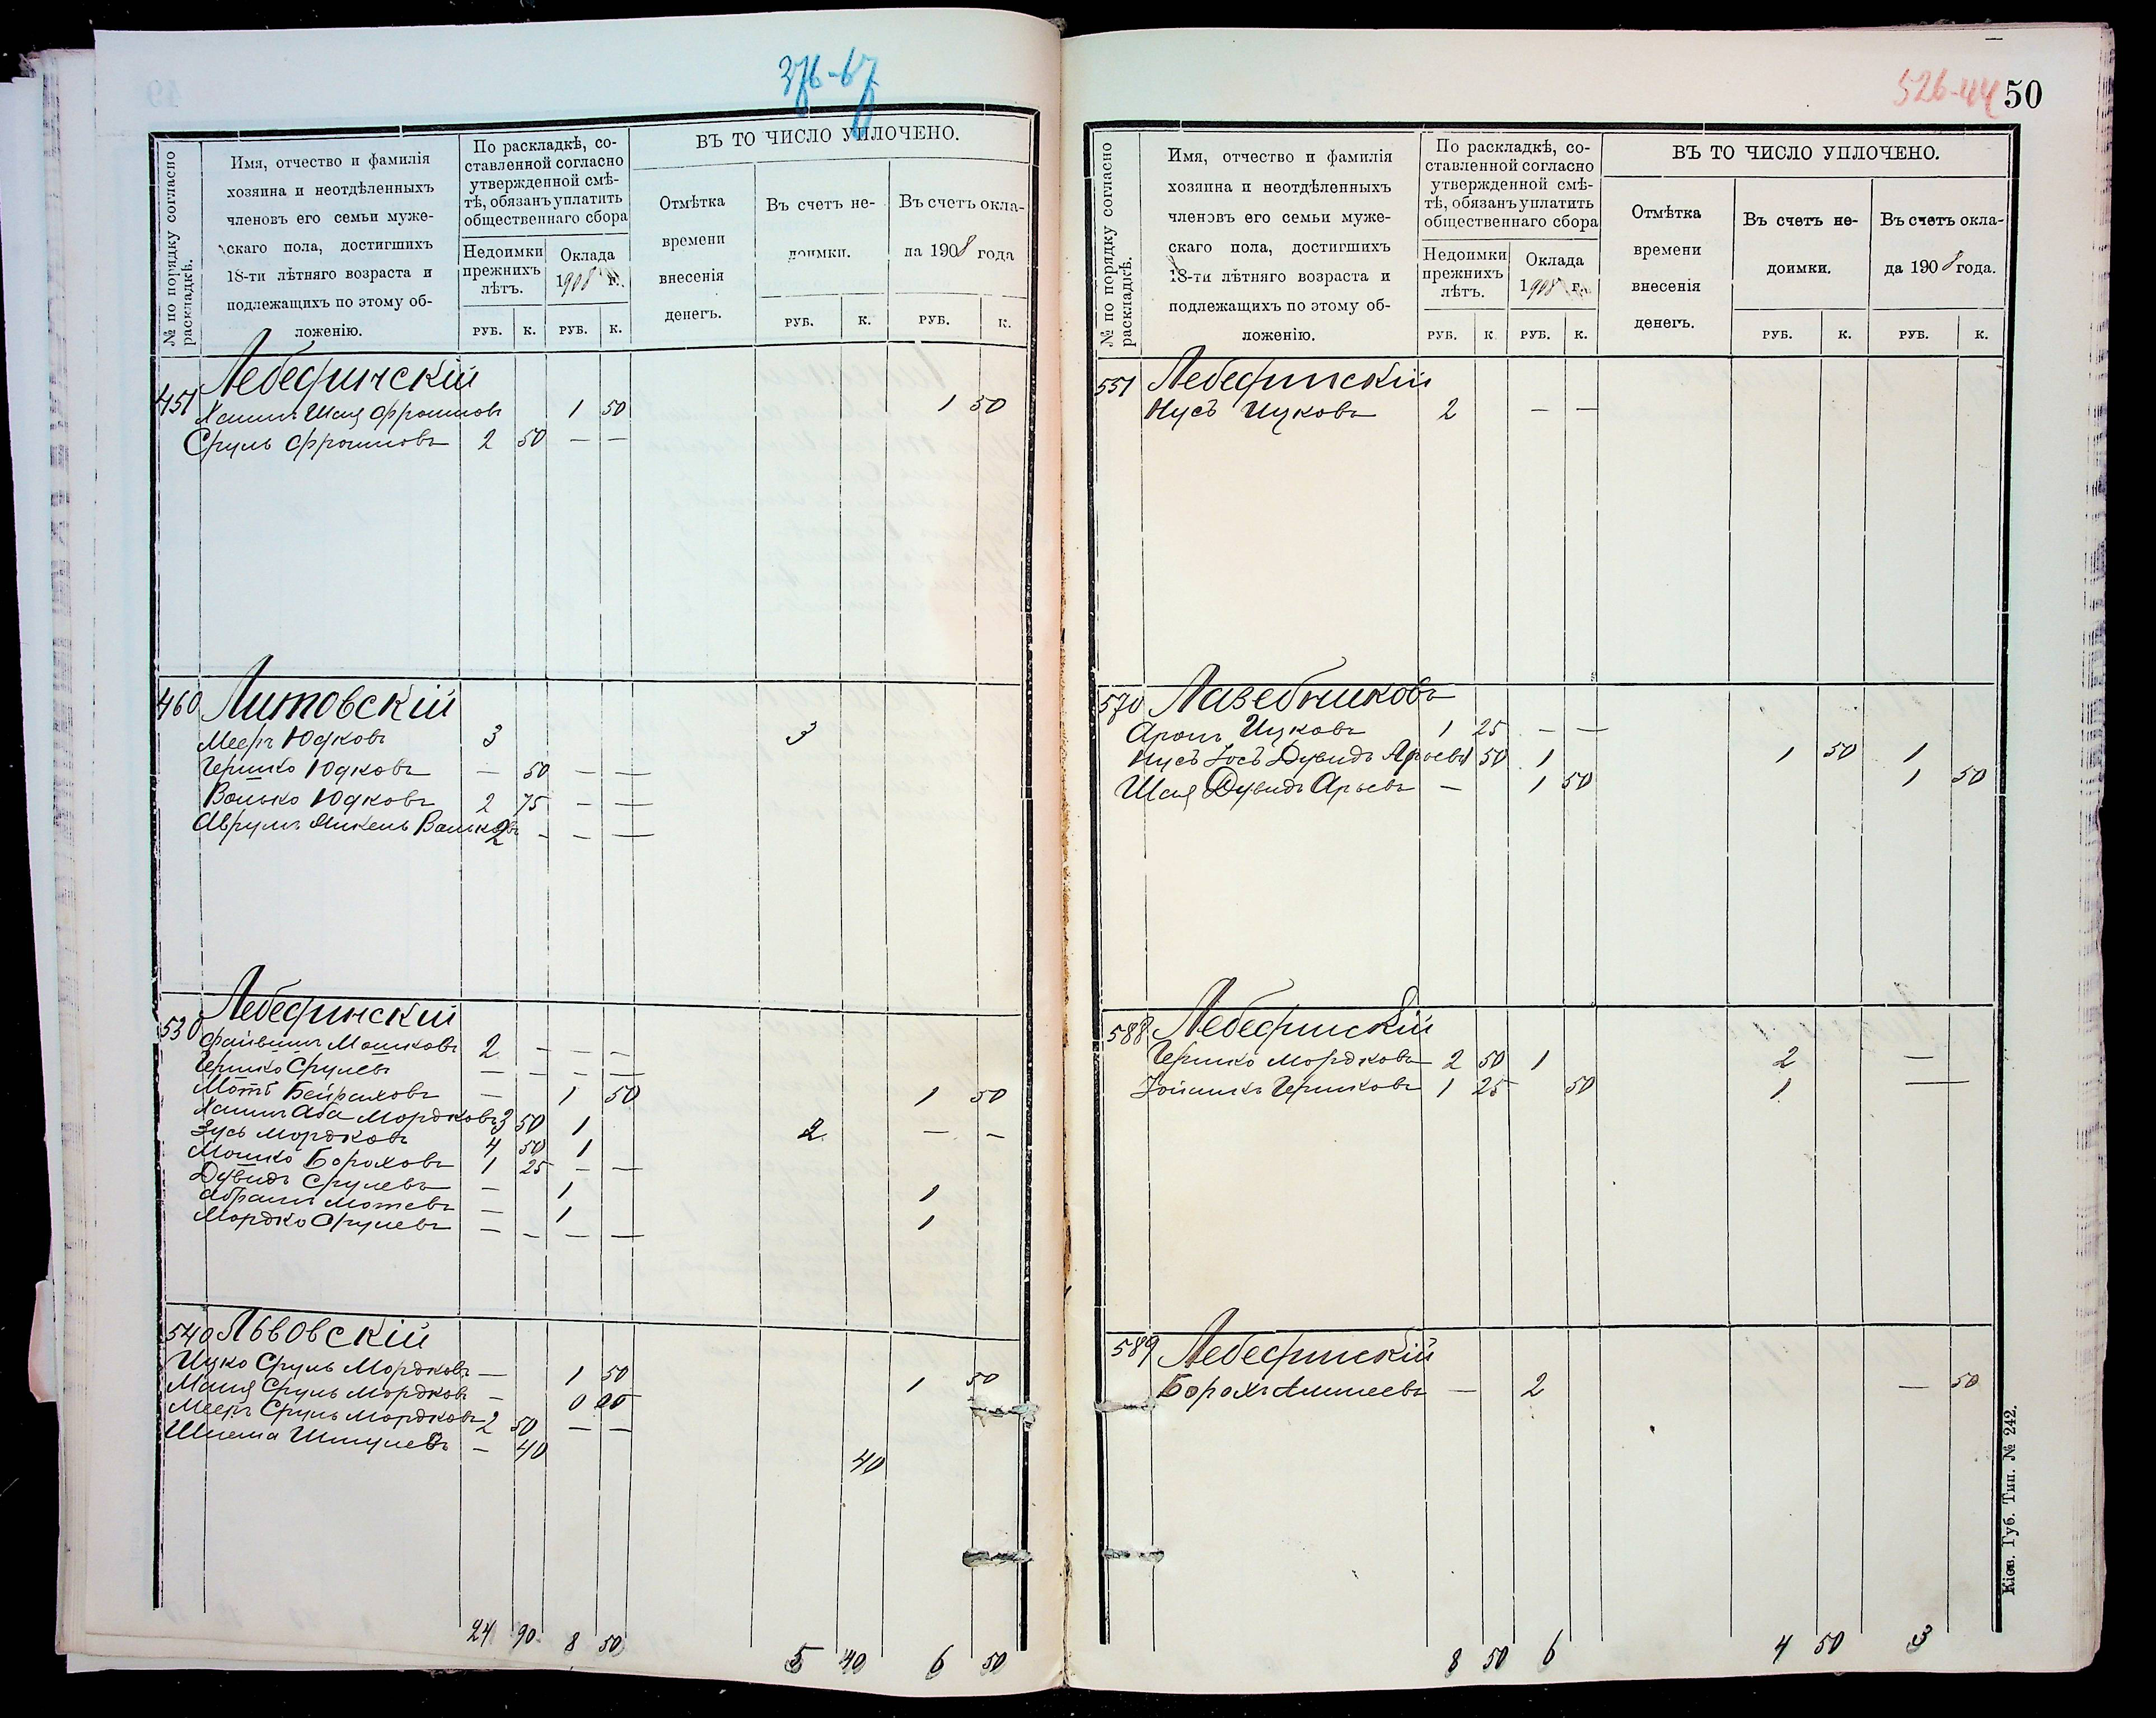 376-67
№ по порядку согласно раскладкѣ.
Имя, отчество и фамилія
хозяина и неотдѣленныхъ
членовъ его семьи муже-
скаго пола, достигшихъ
18-ти лѣтняго возраста и
подлежащихъ по этому об-
ложенію.
По раскладкѣ, со-
ставленной согласно
утвержденной смѣ-
тѣ, обязанъ уплатить
общественнаго сбора
Недоимки
прежнихъ
лѣтъ.
Оклада
1908 г.
ВЪ ТО ЧИСЛО УПЛОЧЕНО.
Отмѣтка
времени
внесенія
денегъ.
Въ счетъ не-
доимки.
Въ счетъ окла-
да 1908 года
РУБ. К. РУБ. К. РУБ. К. РУБ. К.
451 Лебединскій
Хаимъ Шая Фроимовъ 1 50 1 50
Сруль Фроимовъ 2 50 — —
460 Литовскій
Мееръ Юдковъ 3 3
Гершко Юдковъ — 50 — —
Волько Юдковъ 2 75 — —
Аврумъ Вольковъ 2 — — —
530 Лебединскій
Файвишъ Мошковъ 2 — — —
Гершко Срулевъ — — — —
Мотъ Бейраховъ — 1 50 1 50
Хаимъ Аба Мордковъ 3 50 1
Зусь Мордковъ 4 50 1 2 — —
Мошко Бороховъ 1 25 — —
Дувидъ Срулевъ — 1 1
Абрамъ Мотевъ — 1 1
Мордко Срулевъ — — — —
540 Львовскій
Ицко Сруль Мордковъ — 1 50 1 50
Маня Сруль Мордковъ — 0 00
Мееръ Сруль Мордковъ 2 50 — —
Шлема Шмулевъ — 40 40
24 90 8 50 5 40 6 50
526-44 50
№ по порядку согласно раскладкѣ.
Имя, отчество и фамилія
хозяина и неотдѣленныхъ
членовъ его семьи муже-
скаго пола, достигшихъ
18-ти лѣтняго возраста и
подлежащихъ по этому об-
ложенію.
По раскладкѣ, со-
ставленной согласно
утвержденной смѣ-
тѣ, обязанъ уплатить
общественнаго сбора
Недоимки
прежнихъ
лѣтъ.
Оклада
1908 г.
ВЪ ТО ЧИСЛО УПЛОЧЕНО.
Отмѣтка
времени
внесенія
денегъ.
Въ счетъ не-
доимки.
Въ счетъ окла-
да 1908 года.
РУБ. К РУБ. К. РУБ. К. РУБ. К.
551 Лебединскій
Нусъ Ицковъ 2 — —
570 Лазебниковъ
Аронъ Ицковъ 1 25 — —
Нусъ Іосъ Дувидъ Арьевъ 1 50 1 1 50 1
Шая Дувидъ Арьевъ — 1 50 1 50
588 Лебединскій
Гершко Мордковъ 2 50 1 2 —
Гершковъ 1 25 50 1 —
589 Лебединскій
Борохъ — 2 — 50
8 50 6 4 50 3
Кіев. Губ. Тип. № 242.